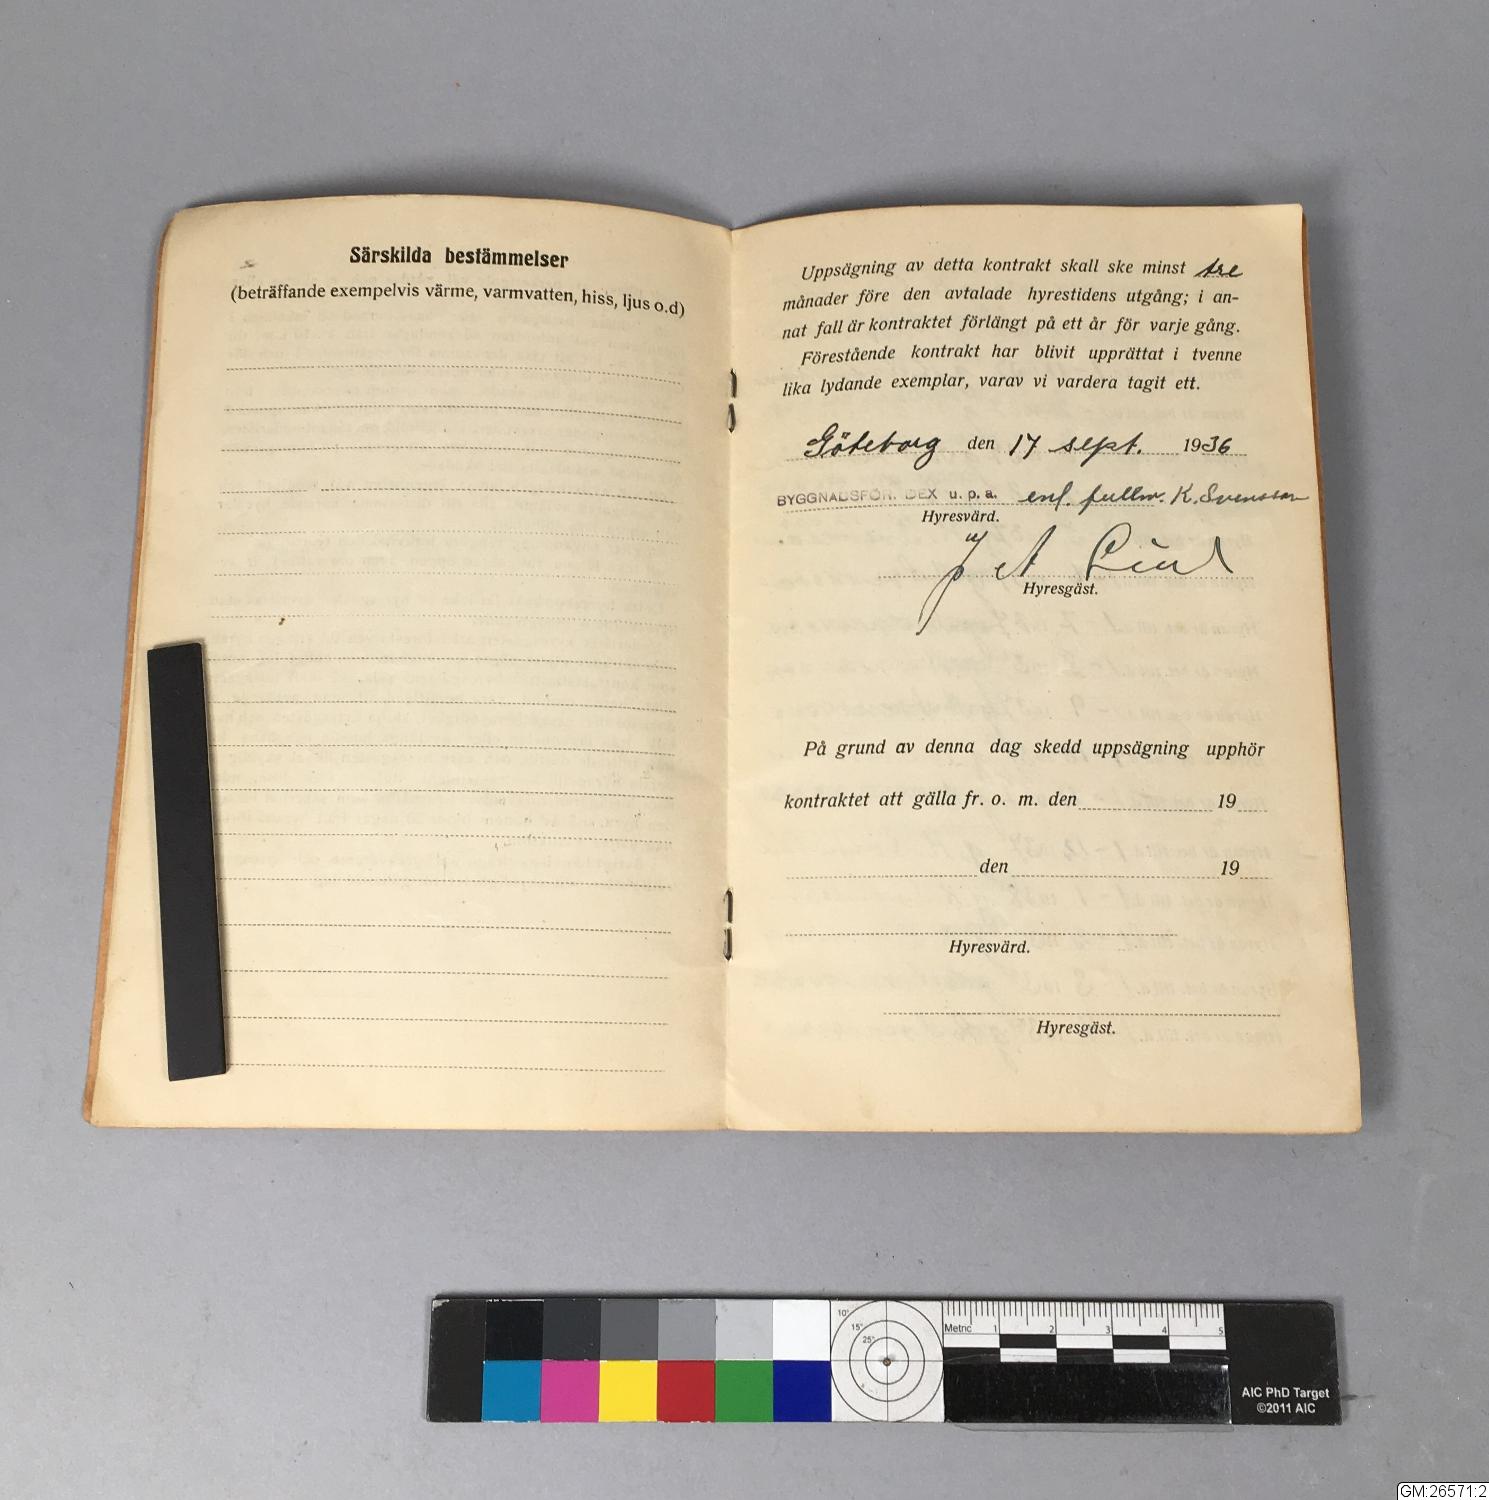 Särskilda bestämmelser
(beträffande exempelvis värme, varmvatten, hiss, ljus o.d)
Uppsägning av detta kontrakt skall ske minst tre
månader före den avtalade hyrestidens utgång; i an-
nat fall är kontraktet förlängt på ett år för varje gång.
Förestående kontrakt har blivit upprättat i tvenne
lika lydande exemplar, varav vi vardera tagit ett.
Göteborg den 17 sept. 1936
BYGGNADSFÖR. DEX u. p. a. enl. fullm. K. Svensson
Hyresvärd.
A Lind
Hyresgäst.
På grund av denna dag skedd uppsägning upphör
kontraktet att gälla fr. o. m. den 19
den 19
Hyresvärd.
Hyresgäst.
10°
15°
25°
Metric 1 2 3 4 5
AIC PhD Target
©2011 AIC
GM:26571:2